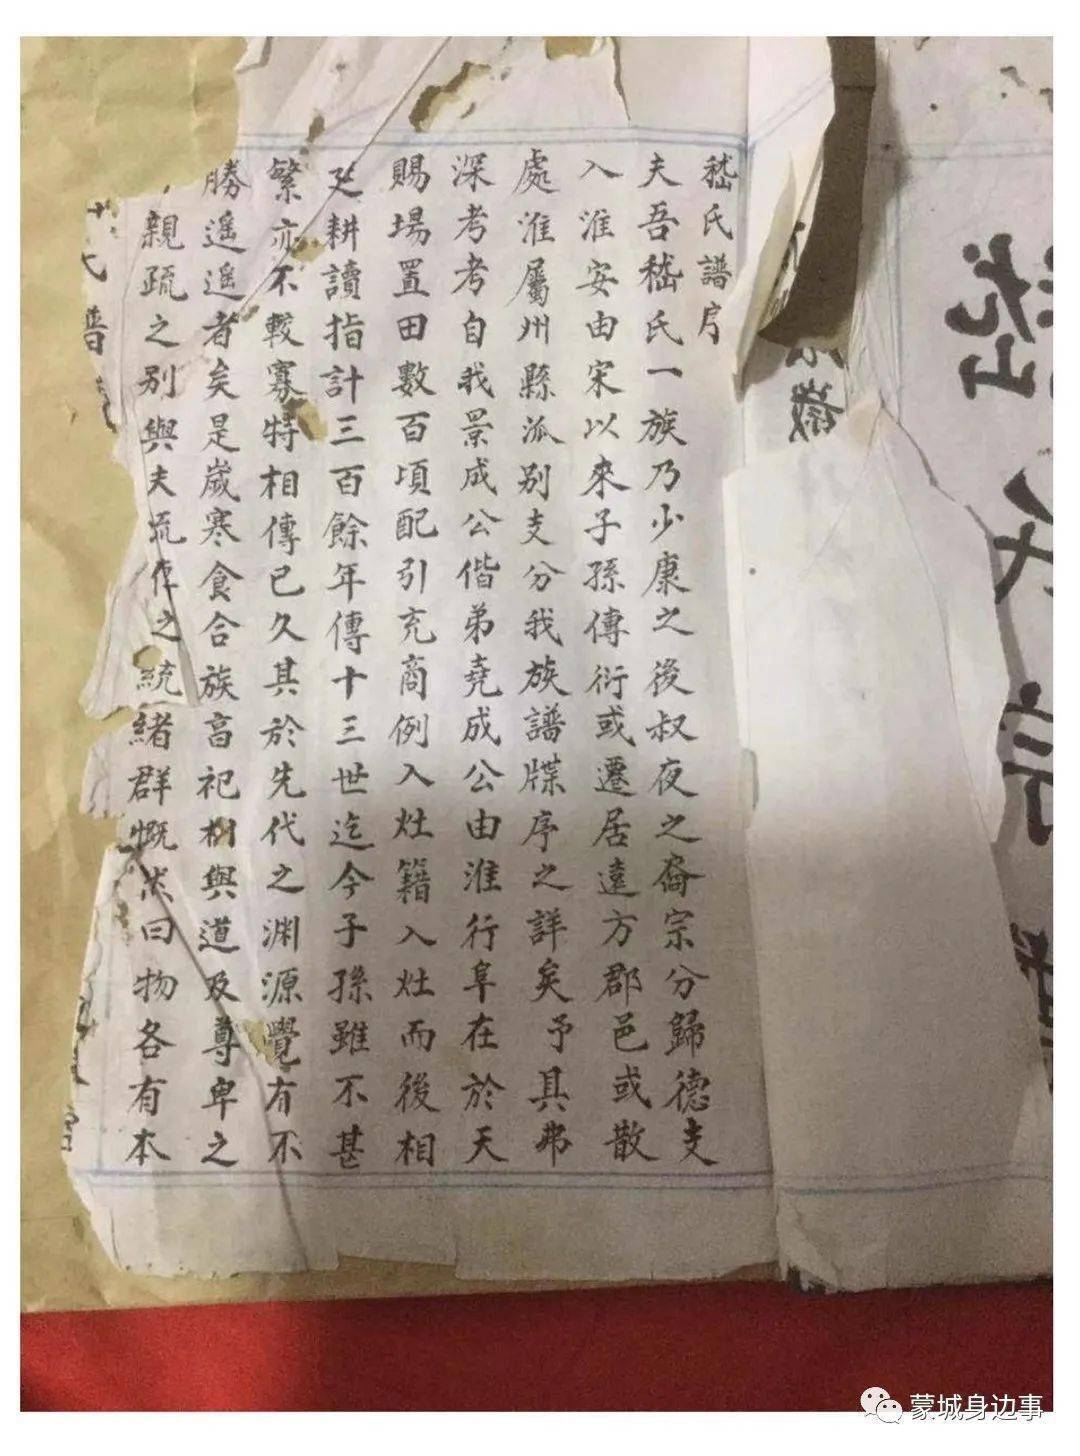 嵇氏譜序
夫吾嵇氏一族乃少康之後叔夜之裔宗分歸德支
入淮安由宋以來子孫傳衍或遷居遠方郡邑或散
處淮屬州縣派别支分我族譜牒序之詳矣予具弗
深考考自我景成公偕弟堯成公由淮行阜在於天
賜場置田數百頃配引充商例入灶籍入灶而後相
耕讀指計三百餘年傳十三世迄今子孫雖不甚
繁亦不較寡特相傳已久其於先代之渊源覺有不
勝遥遥者矣是歲寒食合族畜祀樹與道及尊卑之
親疏之别與夫流作之統緒群慨然曰物各有本
蒙城身边事